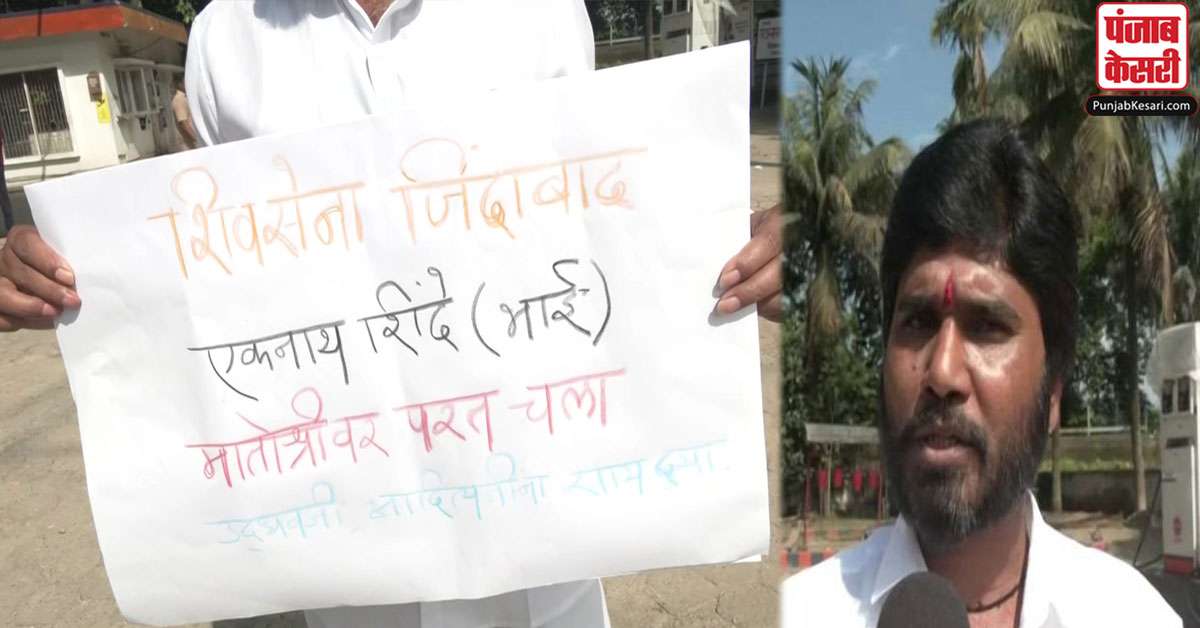 पंजाब
केसरी
PunjabKesari.com
शिवसेना जिंदाबाद
एकनाथ शिंदे (भाई)
मातोश्रीवर परत चला
उद्धवजी आदित्यजींना साथ द्या.